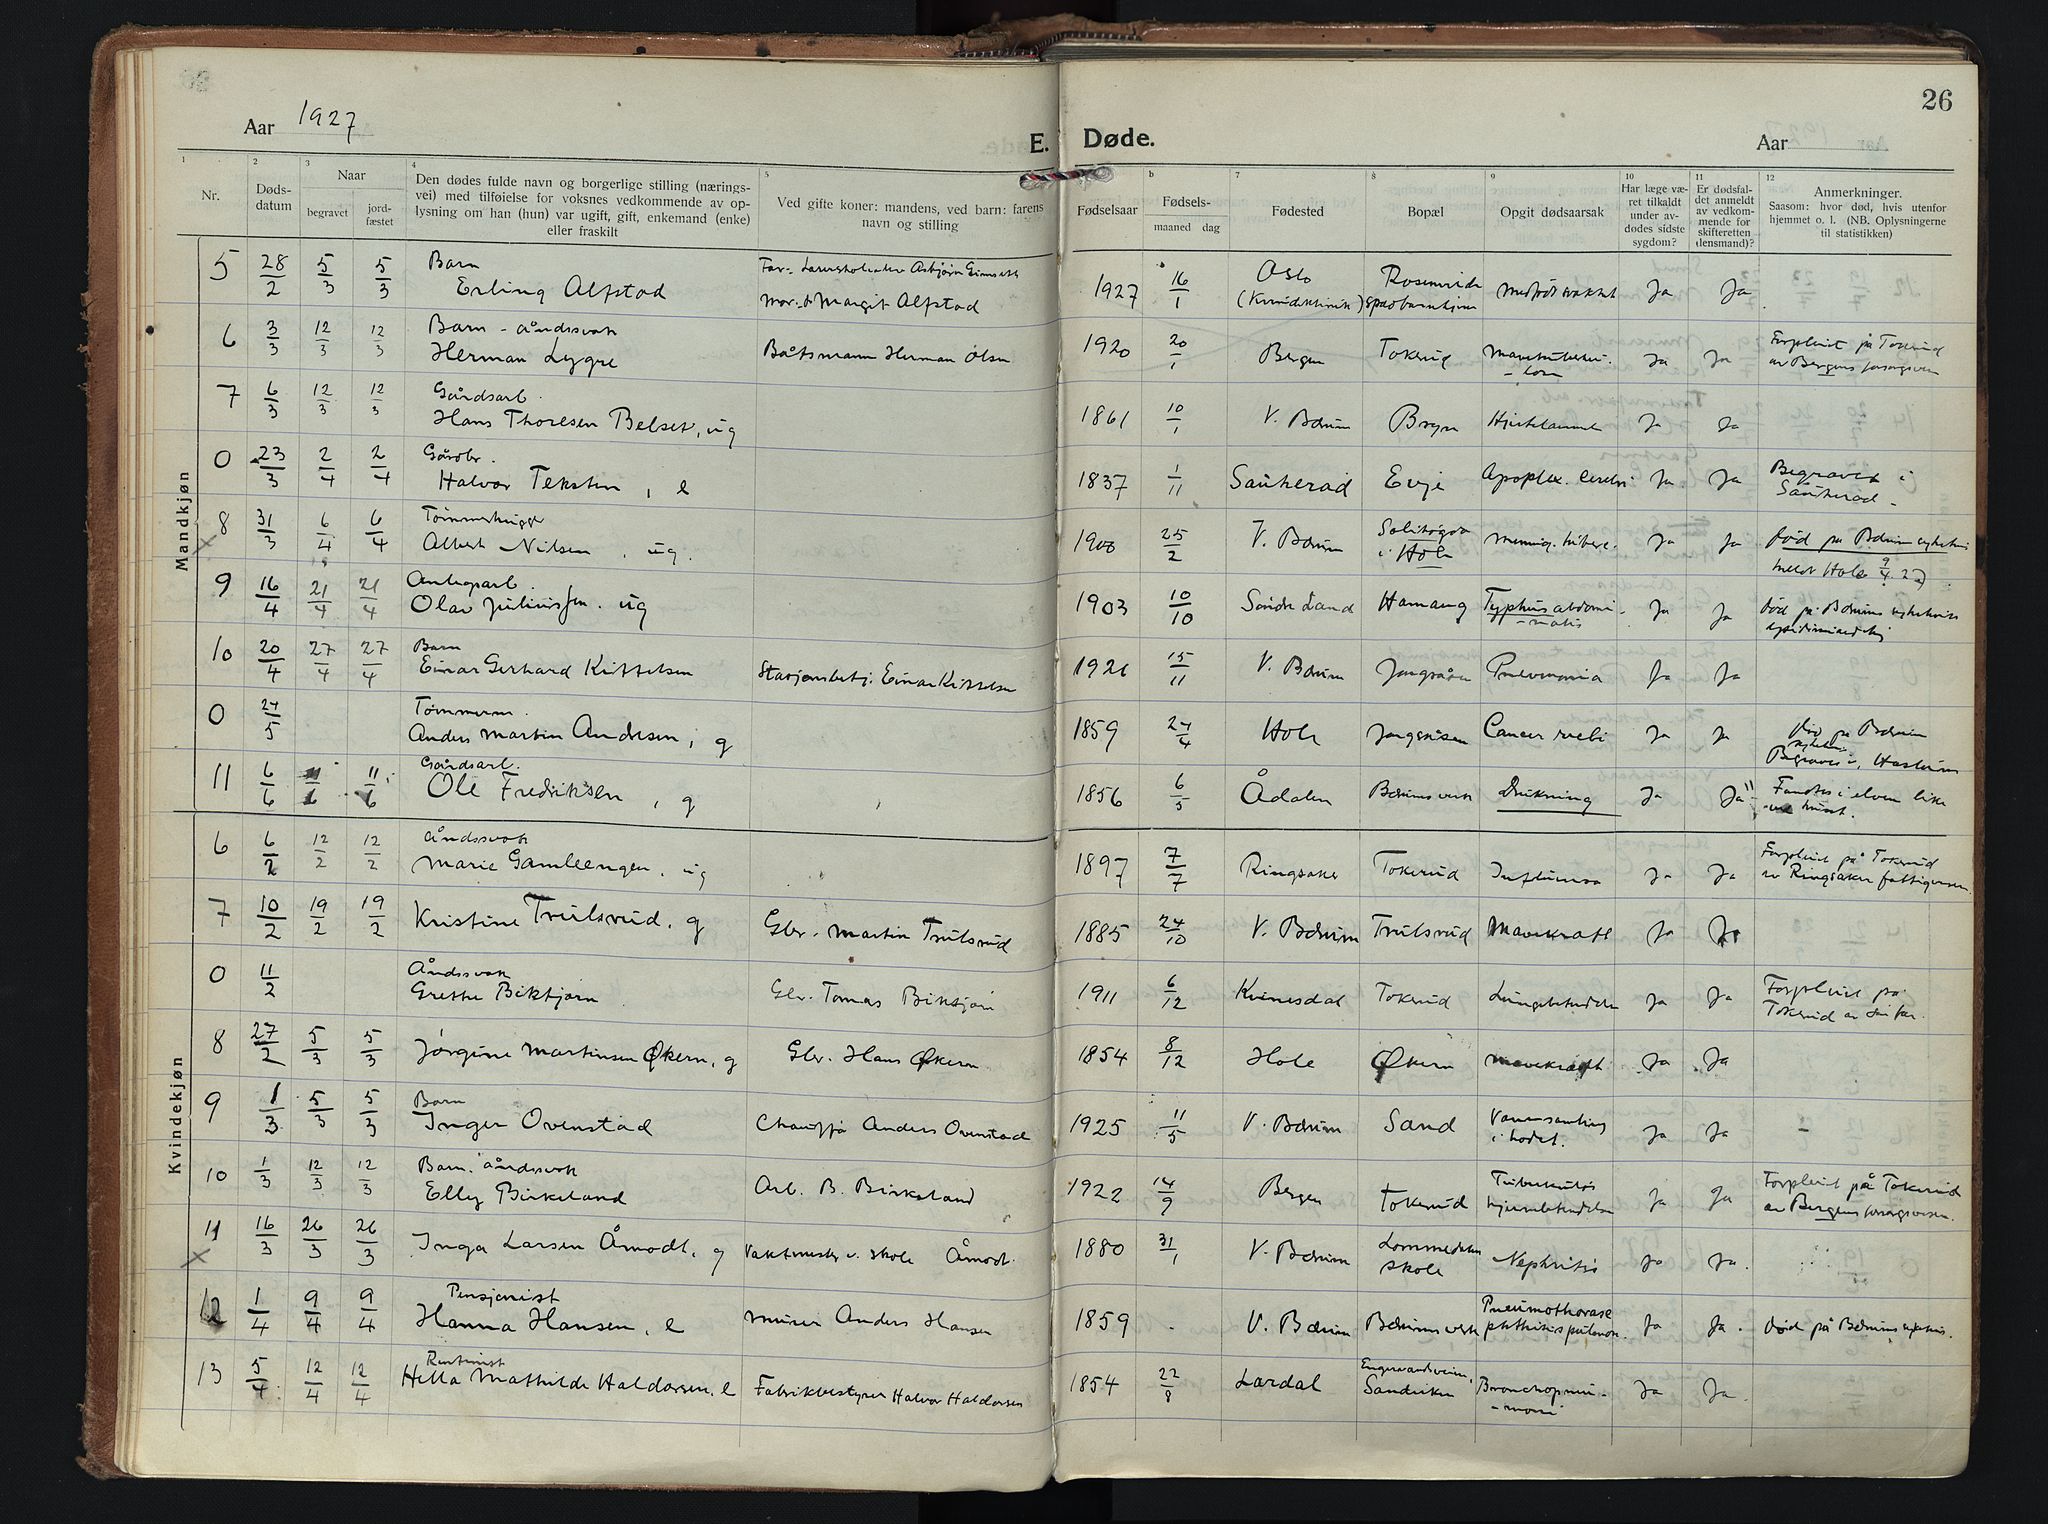 26
Aar 1927
E. Døde.
Aar
1 2 3 4 5 b 7 8 9 10 11 12
Nr.
Døds-
datum
Naar
begravet
jord-
fæstet
Den dødes fulde navn og borgerlige stilling (nærings-
vei) med tilføielse for voksnes vedkommende av op-
lysning om han (hun) var ugift, gift, enkemand (enke)
eller fraskilt
Ved gifte koner: mandens, ved barn: farens
navn og stilling
Fødselsaar
Fødsels-
maaned dag
Fødested
Bopæl
Opgit dødsaarsak
Har læge væ-
ret tilkaldt
under av-
dødes sidste
sygdom?
Er dødsfal-
det anmeldt
av vedkom-
mende for
skifteretten
(lensmand)?
Anmerkninger.
Saasom: hvor død, hvis utenfor
hjemmet o. l. (NB. Oplysningerne
til statistikken)
Mandkjøn
5 28/2 5/3 5/3 Barn
Erling Alfstad
Far: Asbjørn
Mor: Margit Alfstad
1927 16/1 Oslo (Kvindeklinik) spædbarnhjem Ja Ja
6 3/3 12/3 12/3 Barn - åndssvak
Herman Lygre Båtsmann Herman Olsen 1920 20/1 Bergen Tokerud Ja Ja Forpleiet på Tokerud
av Bergens forsorgsvesen
7 6/3 12/3 12/3 Gårdsarb.
Hans Thoresen Belset, ug 1861 10/1 V. Bærum Bryn Ja Ja
0 23/3 2/4 2/4 Gårdbr.
Halvor Teksten, e 1837 1/11 Sauherad Evje Apoplex. cerebri Ja Ja Begravet i
Sauherad
8 31/3 6/4 6/4 Tømmerhugger
Albert Nilsen, ug. 1900 25/2 V. Bærum
i Hole Ja Ja død på Bærum sykehus
meldt Hole 9/4 27)
9 16/4 21/4 21/4 Anlegsarb.
Olav Juliussen. ug 1903 10/10 Søndre Land Hamang Typhus abdomi-
-nalis Ja Ja død på Bærums sykehus
10 20/4 27/4 27/4 Barn
Einar Gerhard Kittelsen Stasjonsbetj. Einar Kittelsen 1926 15/11 V. Bærum Jongsåsen Pneumonia Ja Ja
0 24/5 Tømmerm.
Anders Martin Andresen, g 1859 27/4 Hole Jongsåsen Cancer recti Ja Ja død på Bærum
sykehus
Begravet i Haslum
11 6/6 11/6 11/6 Gårdsarb.
Ole Fredriksen, g 1856 6/5 Ådalen Bærums verk Drukning Ja Ja Fandtes i elven like
ved huset.
Kvindekjøn
6 6/2 12/2 12/2 Åndssvak
Marie Gamleengen, ug 1897 7/7 Ringsaker Tokerud Influensa Ja Ja Forpleiet på Tokerud
av Ringsaker fattigvesen.
7 10/2 19/2 19/2 Kristine Trulsrud, g Gbr. Martin Trulsrud 1885 24/10 V. Bærum Trulsrud Mavekræft Ja Ja
0 11/2 Åndssvak
Grethe Birktjørn Gbr. Tomas Birktjørn 1911 6/12 Kvinesdal Tokerud Lungebetendelse Ja Ja Forpleiet på
Tokerud av sin far.
8 27/2 5/3 5/3 Jørgine Martinsen Økern, g Gbr. Hans Økern 1854 8/12 Hole Økern Mavekræft Ja Ja
9 1/3 5/3 5/3 Barn
Inger Ovenstad Chauffør Anders Ovenstad 1925 11/5 V. Bærum Sand Vannsamling
i hodet. Ja Ja -
10 1/3 12/3 12/3 Barn. åndssvak
Elly Birkeland Arb. B. Birkeland 1922 14/9 Bergen Tokerud Tuberkuløs
hjernebetendelse Ja Ja Forpleiet på Tokerud
av Bergens forsorgsvesen.
11 16/3 26/3 26/3 Inga Larsen Åmodt, g Vaktmester v. skole Åmodt. 1880 31/1 V. Bærum Lommedalen
skole Nephritis Ja Ja.
12 1/4 9/4 9/4 Pensjonist
Hanna Hansen, e Murer Anders Hansen 1859 V. Bærum Bærums verk Pneumothorax
phthisis pulmon. Ja Ja. død på Bærums sykehus.
13 5/4 12/4 12/4 Rentenist
Hella Mathilde Haldorsen, e Fabrikbestyrer Halvor Haldorsen 1854 22/8 Lardal
Sandviken Bronchopneu-
-moni Ja Ja.